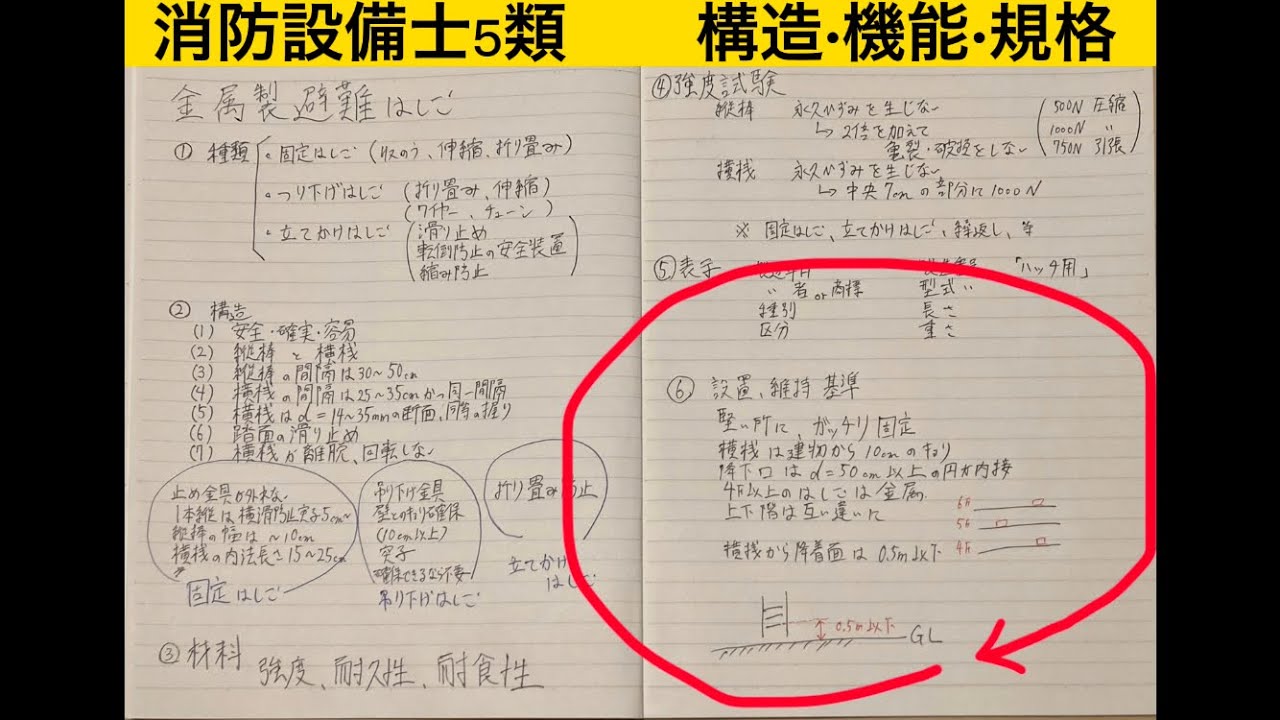 消防設備士5類
構造・機能・規格
金属製避難はしご
① 種類
・固定はしご (収のう、伸縮、折り畳み)
・つり下げはしご (折り畳み、伸縮)
(ワイヤー、チェーン)
・立てかけはしご
滑り止め
転倒防止の安全装置
縮み防止
② 構造
(1) 安全・確実・容易
(2) 縦棒と横桟
(3) 縦棒の間隔は30~50cm
(4) 横桟の間隔は25~35cmかつ同一間隔
(5) 横桟はd=14~35mmの断面、同等の握り
(6) 踏面の滑り止め
(7) 横桟が離脱、回転しない
止め金具が外れない
1本縦は横滑防止突子5cm~
縦棒の幅は~10cm
横桟の内法長さ15~25cm
固定はしご
吊下げ金具
壁とのキリ確保
(10cm以上)
突子
確保できるなら不要
吊り下げはしご
折り畳み防止
立てかけ
はしご
③ 材料 強度、耐久性、耐食性
④ 強度試験
縦棒 永久ひずみを生じない
↳ 2倍を加えて
亀裂・破損をしない
500N 圧縮
1000N 〃
750N 引張
横桟 永久ひずみを生じない
↳ 中央7cmの部分に1000N
※ 固定はしご、立てかけはしご、繰返し、等
⑤ 表示 「ハッチ用」
〃 者 or 商標 型式 〃
種別 長さ
区分 重さ
⑥ 設置、維持 基準
堅い所に、ガッチリ固定
横桟は建物から10cmのキリ
降下口はd=50cm以上の円が内接
4F以上のはしごは金属
上下階は互い違いに
6F
5F
4F
横桟から降着面は0.5m以下
0.5m以下
GL